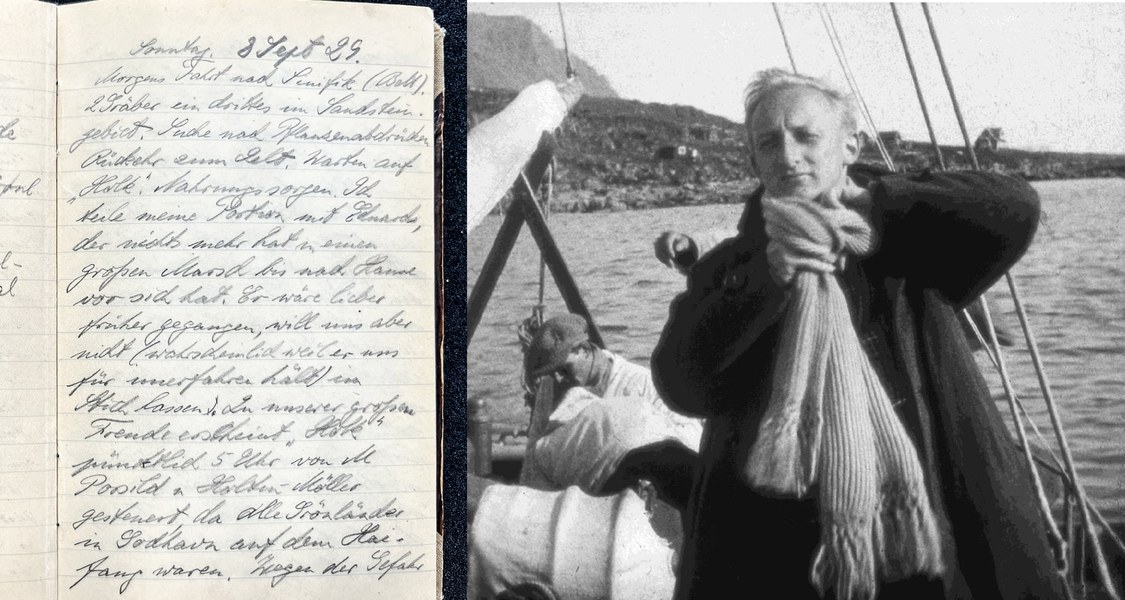 Sonntag. 8 Sept 29.
Morgens Fahrt nach Sinifik (Boot).
2 Gräber ein drittes im Sandstein-
gebiet. Suche nach Pflanzenabdrücken
Rückehr zum Zelt. Warten auf
"Holk". Nahrungssorgen. Ich
teile meine Portion mit Eduards,
der nichts mehr hat u einen
großen Marsch bis nach Hause
vor sich hat. Er wäre lieber
früher gegangen, will uns aber
nicht (wahrscheinlich weil er uns
für unerfahren hält) im
Stich lassen). Zu unserer großen
Freude erscheint "Holk"
pünktlich 5 Uhr von M
Porsild u Holten-Möller
gesteuert, da alle Grönländer
in Godhavn auf dem Hai-
fang waren. Wegen der Gefahr